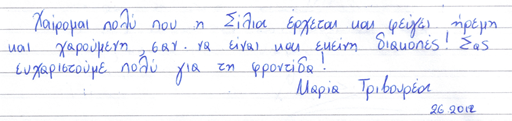 Χαίρομαι πολύ που η Σίλια έρχεται και φεύγει ήρεμη
και χαρούμενη, σαν να είναι και εμείνη διακοπές! Σας
ευχαριστούμε πολύ για τη φροντίδα!
Μαρία Τριβουρέα
26 2012